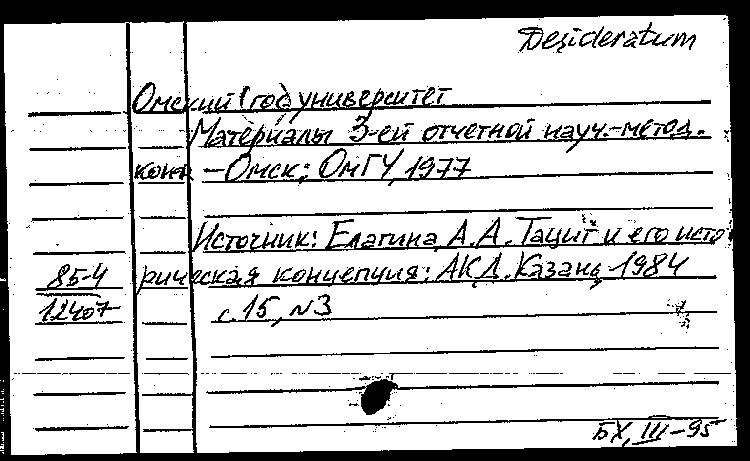 Desideratum
Омский год университет
Материалы 3-ей отчетной науч.-метод.
конф. – Омск: ОмГУ, 1977
Источник: Елагина А.А. Тацит и его исто
85-4 рическая концепция: АКД. Казань, 1984
12407 с.15, №3
БХ, III–95